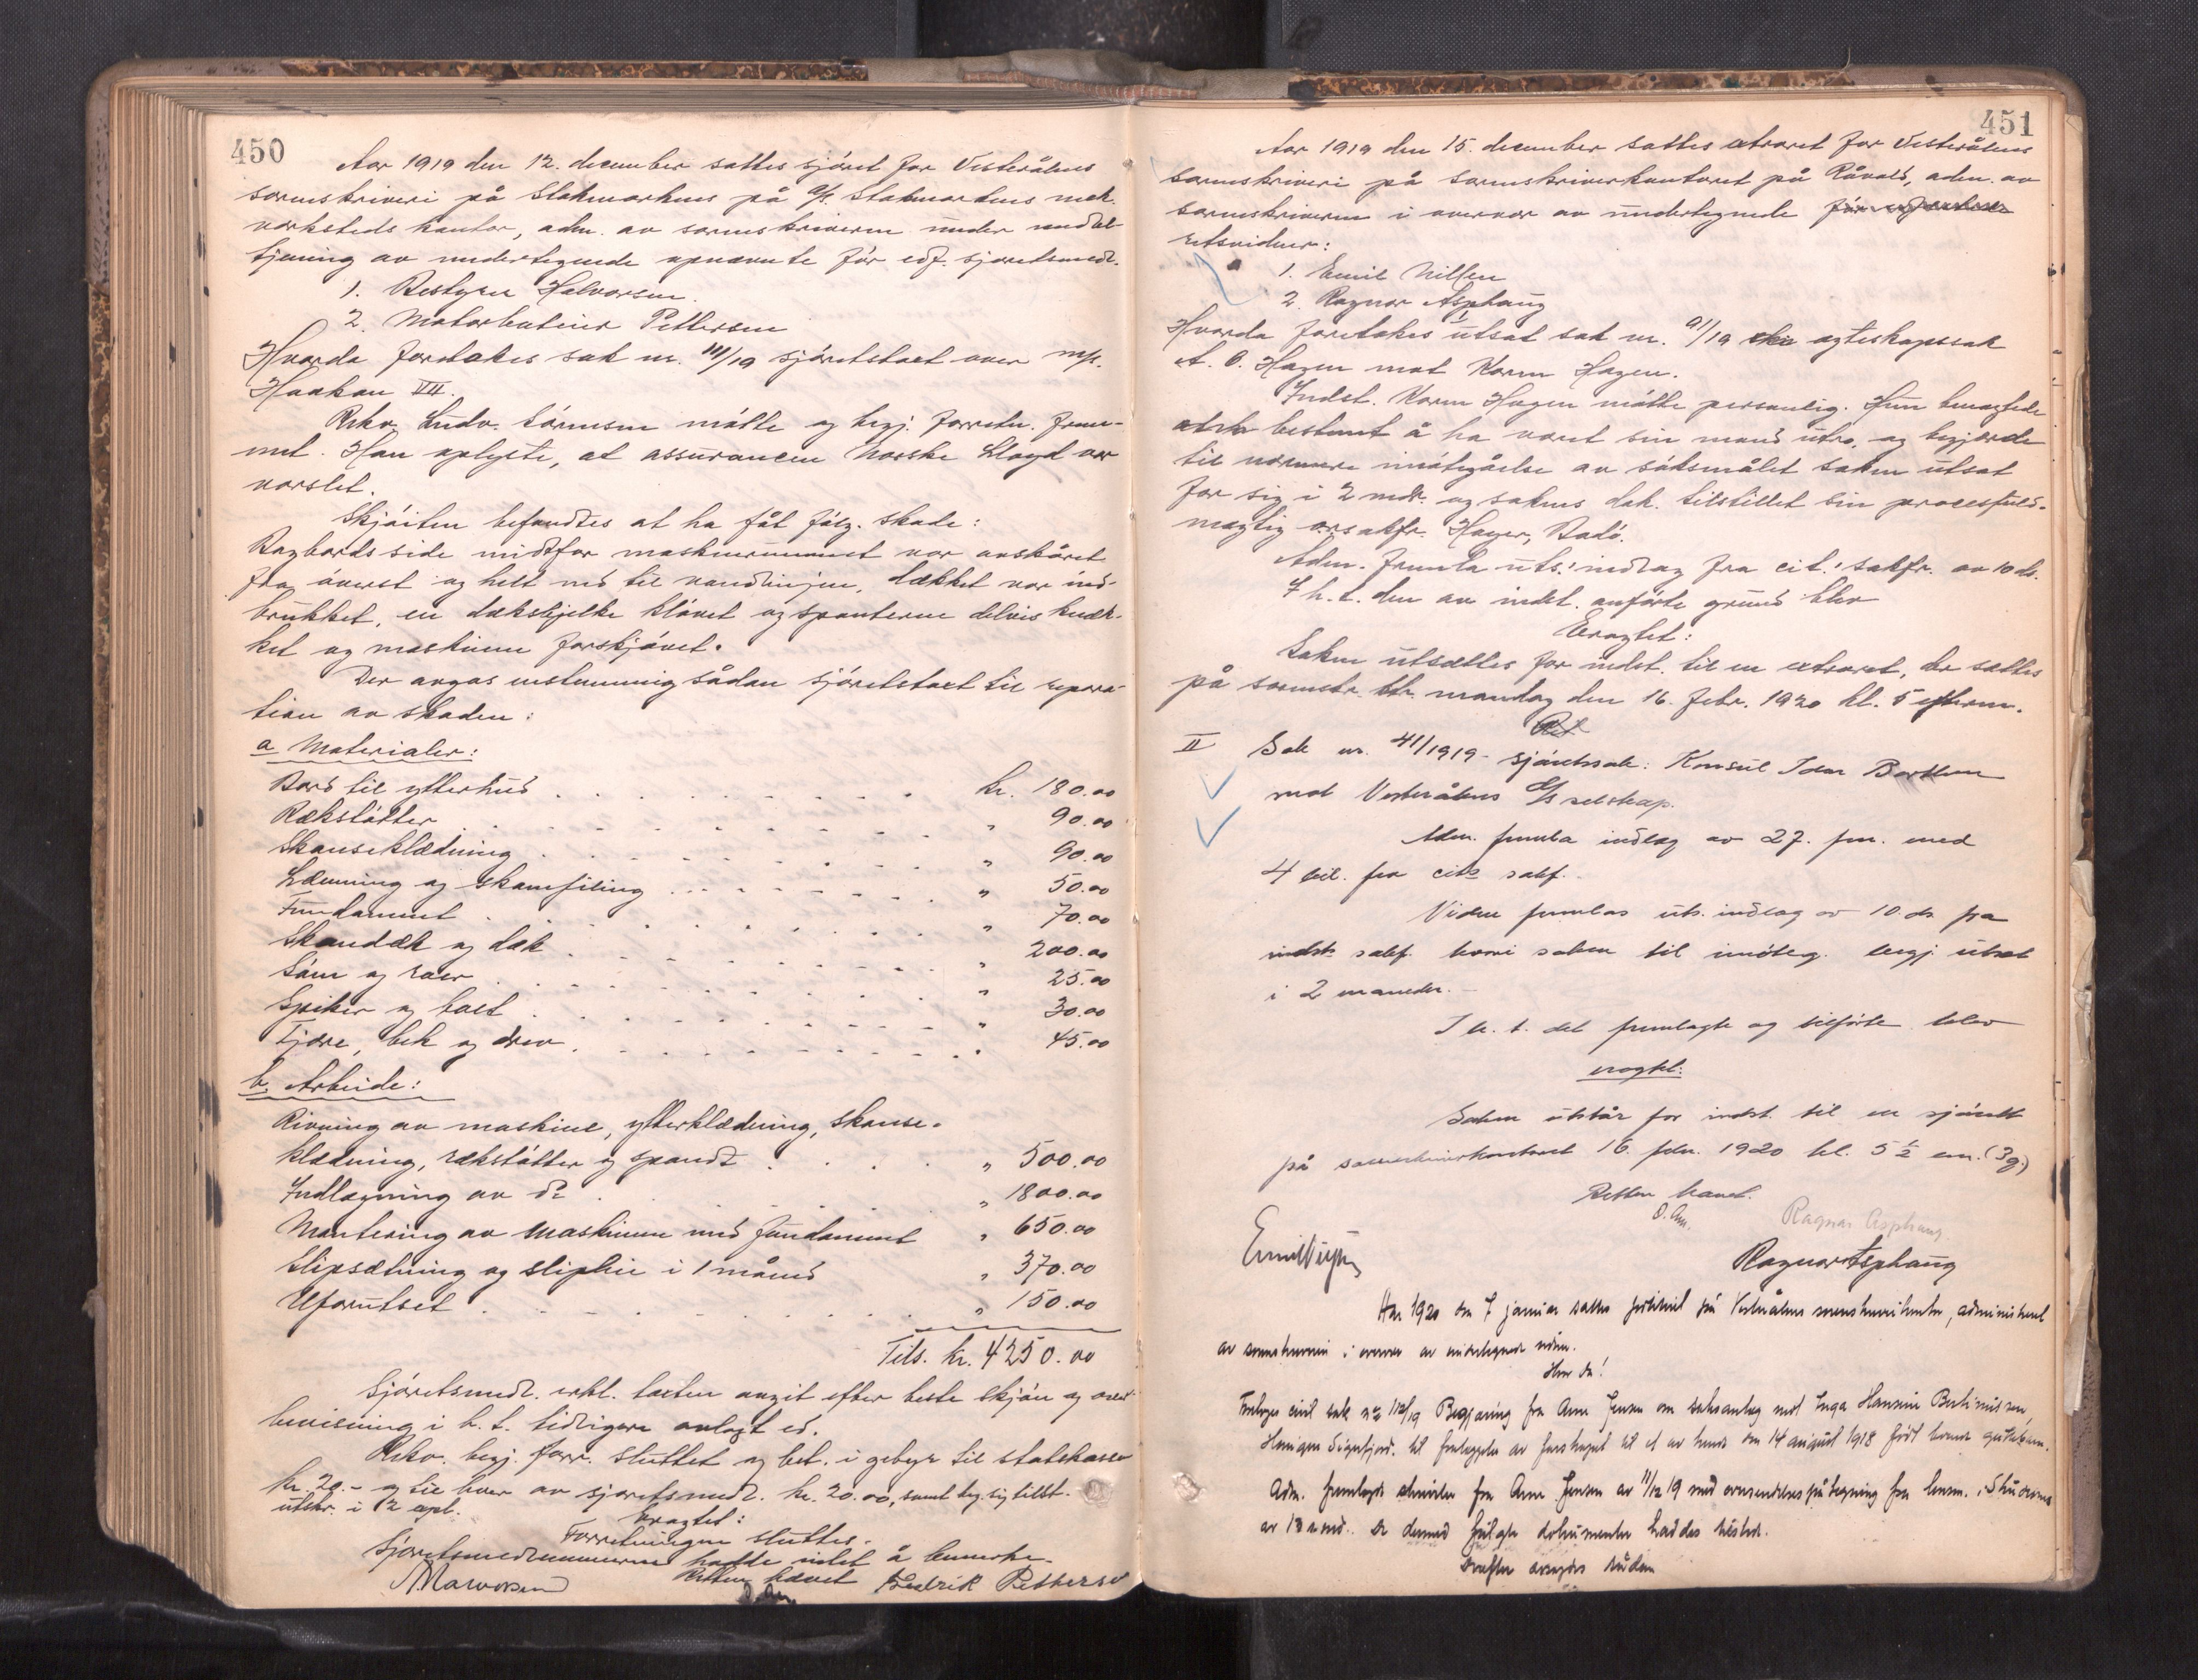 450
Aar 1919 den 12. december sattes sjöret for Vesterålens
sorenskriveri på Stokmarknes på A/S. Stokmarknes mek.
verksteds kontor, adm. av sorenskriveren under meddel-
tjening av undertegnede opnævnte för edf. sjöretsmedl.
1. Bestyrer Halvorsen.
2. Motorbutener Pettersen
Hvorda foretakes sak nr. /19 sjöretstaxt over m/k.
Haakon VII.
Rekv. Ludv. Sörensen mötte og begj. forretn. frem-
met. Han oplyste, at assurancen Norske Lloyd var
varslet.
Skjöiten befandtes at ha fåt fölg. skade:
Bagbords side midtfor maskinrummet var avskåret
fra överst og helt ned til vandlinjen, dækket var ned-
brukket, en dæksbjelke klövet og spanterne delvis knæk-
ket og maskinen forskjövet.
Der avgas enstemmig sådan sjöretstaxt til repara-
tion av skaden:
a Materialer:
Bord til ytterhud . . . kr. 180.00
Rækstötter . . . " 90.00
Skanseklædning . . . " 90.00
Lænning og skamfiling . . . " 50.00
Fundament . . . " 70.00
Skandæk og dæk . . . " 200.00
Söm og roer . . . " 25.00
Spiker og bolt . . . " 30.00
Tjære, bek og drev . . . " 45.00
b Arbeide:
Rivning av maskine, ytterklædning, skanse-
klædning, rækstötter og spandt . . . " 500.00
Indlægning av do . . . " 1800.00
Montering av maskinen med fundament " 650.00
Slipsætning og slipleie i 1 måned " 370.00
Uforutset . . . " 150.00
Tils. kr. 4250.00
Sjöretsmedl. erkl. taxten avgit efter beste skjön og over-
bevisning i h. t. tidligere avlagt ed.
Rekv. begj. forr. sluttet og bet. i gebyr til statskassen
kr. 20.- og til hver av sjöretsmedl. kr. 20.00, samt beg. sig tilst.
utskr. i 2 expl.
Eragtet:
Forretningen sluttes.
Sjöretsmedlemmerne hadde intet å bemerke.
Retten hævet
Halvorsen Fredrik Pettersen
451
Aar 1919 den 15. december sattes extraret for Vesterålens
sorenskriveri på sorenskriverkontoret på , adm. av
sorenskriveren i overvær av undertegnede
retsvidner:
1. Emil Nilsen
2. Ragnar Asphaug
I
Hvorda foretakes utsat sak nr. 91/19 egteskapssak
A. O. Hagen mot Karen Hagen.
Indst. Karen Hagen mötte personlig. Hun benegtede
bestemt å ha været sin mand utro, og begjærde
til nærmere imötegåelse av söksmålet saken utsat
for sig i 2 mdr. og sakens dok. tilstillet sin procesfuld-
mægtig o.r.sakfr. Hager, Bodö.
Adm. fremla uts.indlæg fra cit.s sakfr. av 10 ds.
I h. t. den av indst. anförte grund blev
Eragtet:
Saken utsættes for indst. til en extraret, der sættes
på sorenskr. ktr. mandag den 16. febr. 1920 kl. 5 efterm.
II Sak nr. 41/1919 - sjöretssak: Konsul
mot Vesterålens D/S selskap.
Adm. fremla indlæg av 27. fm. med
4 bil. fra cits sakf.
Videre fremlas uts. indlæg av 10. ds. fra
indst. sakf. hvori saken til imöteg. begj. utsat
i 2 maaneder.
I h. t. det fremlagte og tilförte blev
eragtet:
Saken utstår for indst. til en sjörett
på sorenskriverkontoret 16. febr. 1920 kl. 5 ½ em. (3 g.)
Retten hævet.
Ragnar Asphaug.
Emil Nilsen Ragnar Asphaug
Aar 1920 den 7 januar sattes på Vesterålens sorenskriverkontor, administrert
av sorenskriveren i overvær av undertegnede vidne.
Hvor da!
Foretoges civil sak no 112/19 Begjæring fra Arne Jensen om saksanlæg mot Inga Hansine
Sigerfjord. til fralæggelse av farskapet til et av hende den 14 august 1918 födt barn.
Adm. fremlagde skrivelse fra Arne Jensen av 11/12 19 med påtegning fra lensm. i
av 18 . De dermed fulgte dokumenter .
Derefter avsagdes sådan